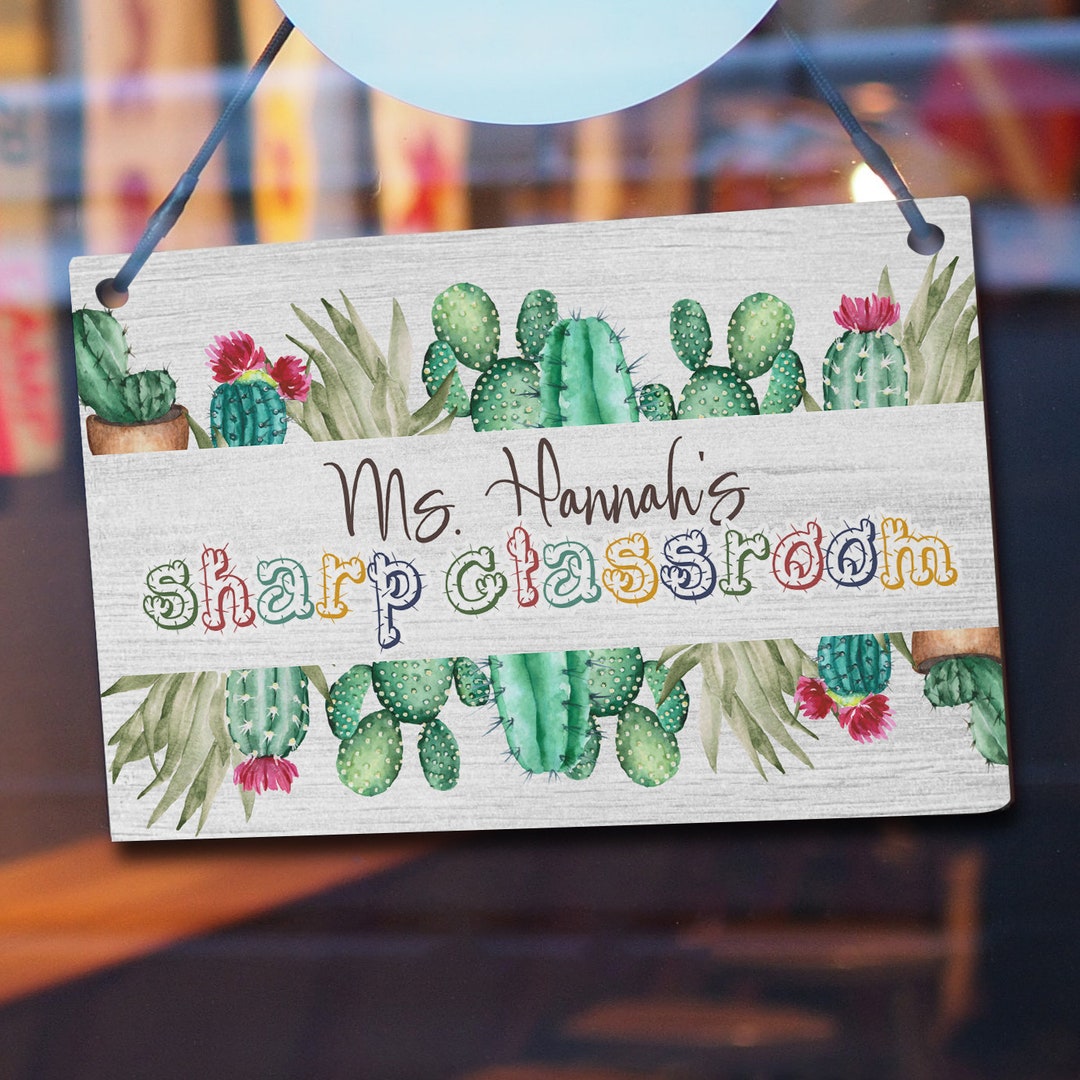 Ms. Hannah's
sharp classroom